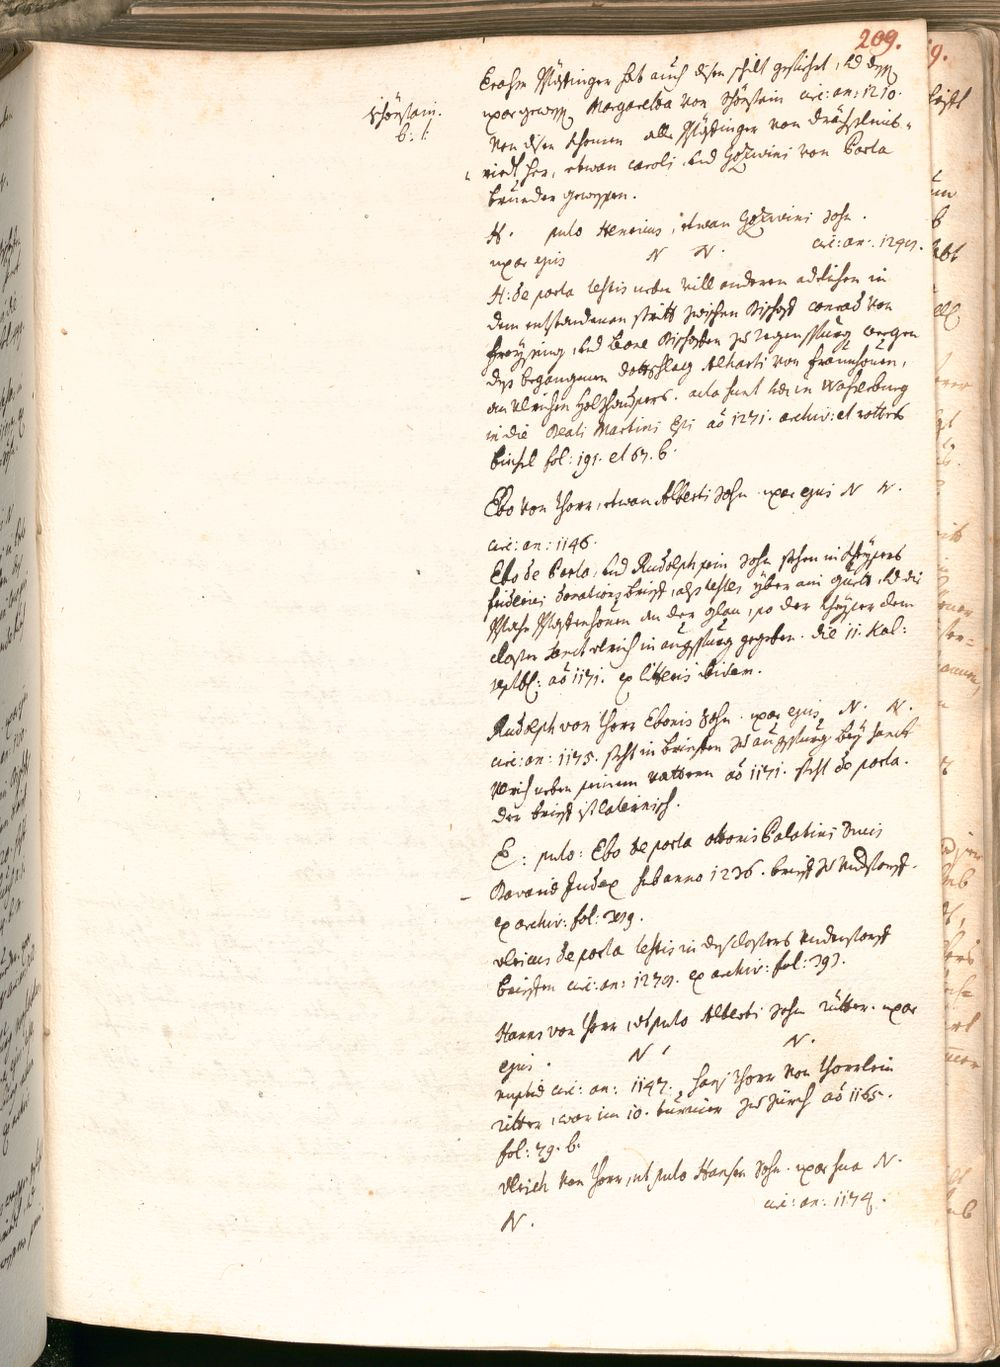 209.
Schörstain.
b: 1.
Erasm Mächtinger hat auch disen schilt gefiehrt, vnd dessen
uxor gewesen Margaretha von Schörstain circ: an: 1210.
von disen khomen alle Mächtinger von
riedt her, etwan Caroli vnd Goswini von Porta
brueder gewesen.
H. puto Henricus, etwan Goswini Sohn.
uxor ejus N N. circ: an:
H: de porta testis neben vill anderen adelichen in
dem entstandenen stritt zwischen Bischoff Conrad von
Freysing, vnd Leone Bischoffen zu Regenspurg wegen
dess begangenen dottschlag Alharti von Fraunhouen,
an Ulrichen Holzhausers. acta sunt haec in Wasserburg
in die Beati Martini Epi aõ 1271. archiv: et rottes
biechl fol: 191. et 67. b.
Ebo von Thorr, etwan Alberti Sohn. uxor ejus N N.
circ: an: 1146.
Ebo de Porta, vnd Rudolph sein Sohn stehen in Kheysers
Friderici donations brieff, als testes yber ain guett, vnd die
an der Glan, so der Kheyser dem
closter Sanct Ulrich in Augspurg gegeben. die 11. Kal:
septbl: aõ 1171. ex litteris ibidem.
Rudolph von Thorr Ebonis Sohn. uxor ejus N. N.
circ: an: 1175. steht in brieffen zu Augspurg bey Sanct
Ulrich neben seinem vatteren aõ 1171. steht de porta.
der brieff ist lateinisch.
E: puto: Ebo de porta Ottonis Palatini Ducis
Bavariae Judex sub anno 1236. brieff zu Understorff.
ex archiv: fol: 319.
Ulricus de porta testis in dess closters Understorff
brieffen circ: an: 1279. ex archiv: fol: 393.
Hanns von Thorr, ut puto Alberti Sohn ritter. uxor
ejus. N. N.
nuptiae circ: an: 1147. Hans Thorr von Thorrlein
ritter, war im 10. turnier zu Zürch aõ 1165.
fol: 79. b.
Ulrich von Thorr, ut puto Hansen Sohn. uxor sua N.
N. circ: an: 1174.